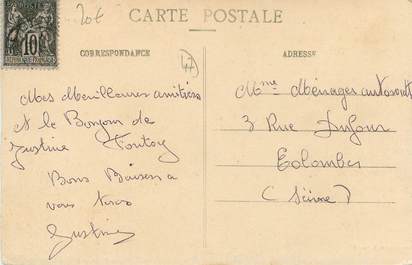 20€
CARTE POSTALE
CORRESPONDANCE
ADRESSE
10
47
Mes Meilleures amitiés
et le Bonjour de
Justine
Bons Baisers a
vous tous
Justine
Mme Ménages
3 Rue Dufour
Colombes
(Seine)